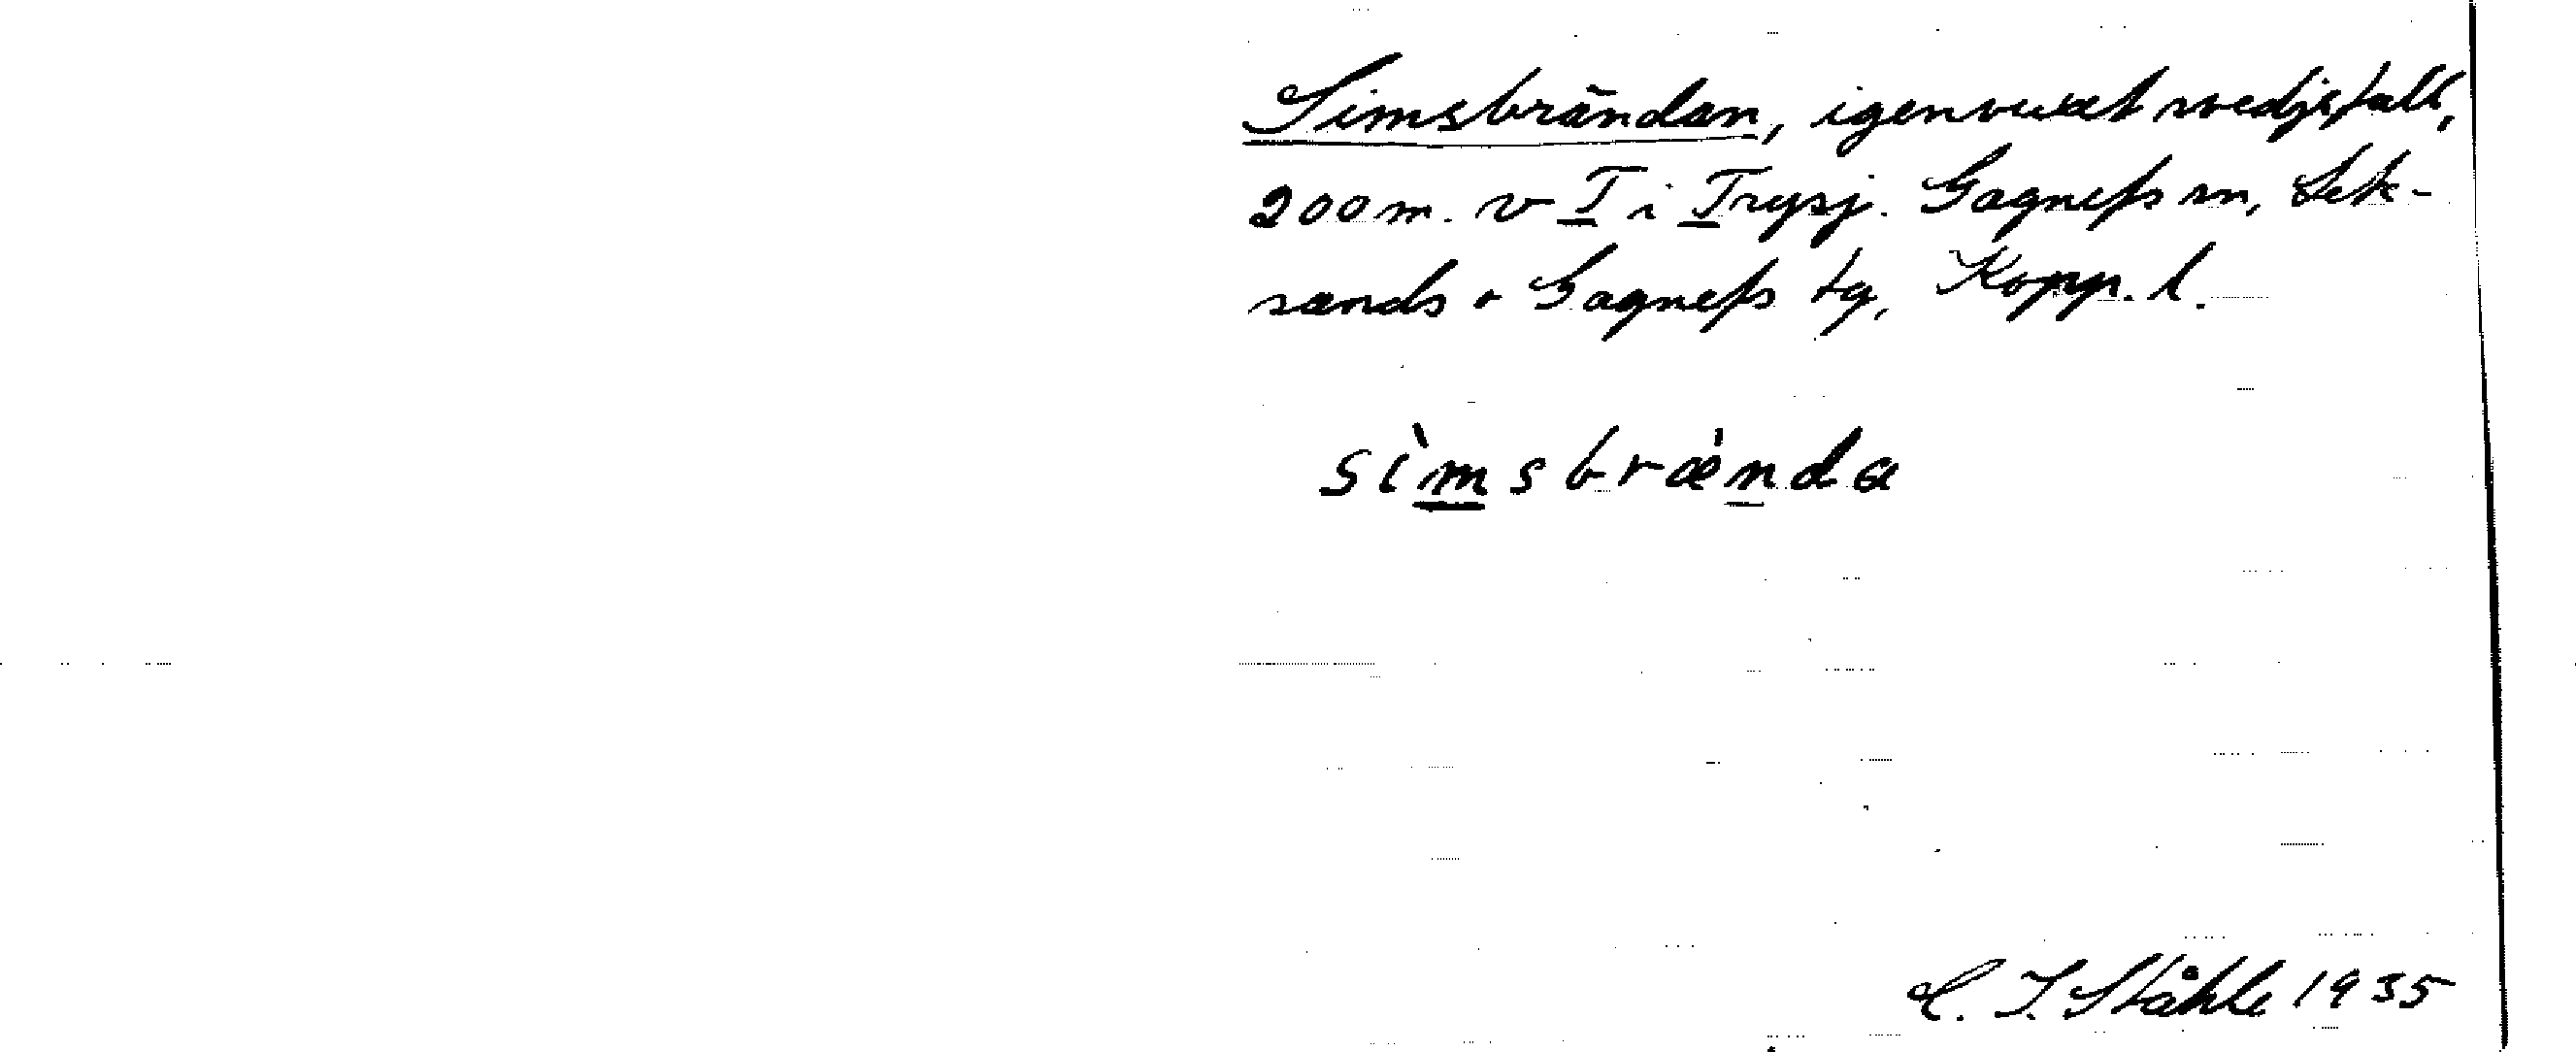 Simsbrändan, igenvuxet svedjefall,
200 m. v T i Trysj. Gagnefs sn, Lek-
sands o Gagnefs tg, Kopp. l.
sìmsbræ̀nda
C. I. Ståhle 1935